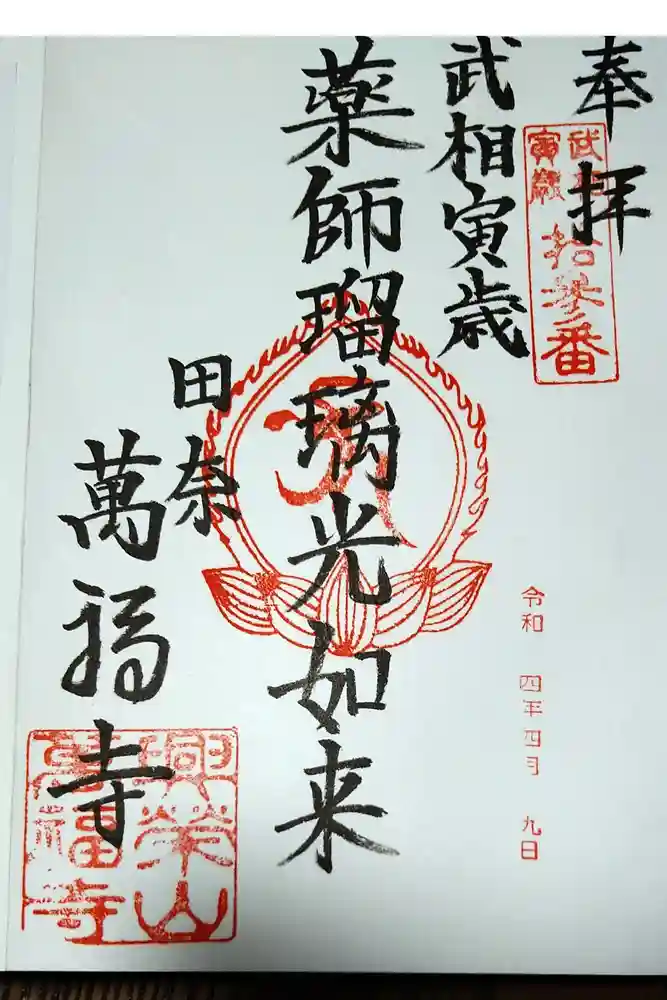 奉拝
武相
寅歳
拾参番
武相寅歳
薬師瑠璃光如来
田奈
萬福寺
興榮山
萬福寺
令和 四年四月 九日